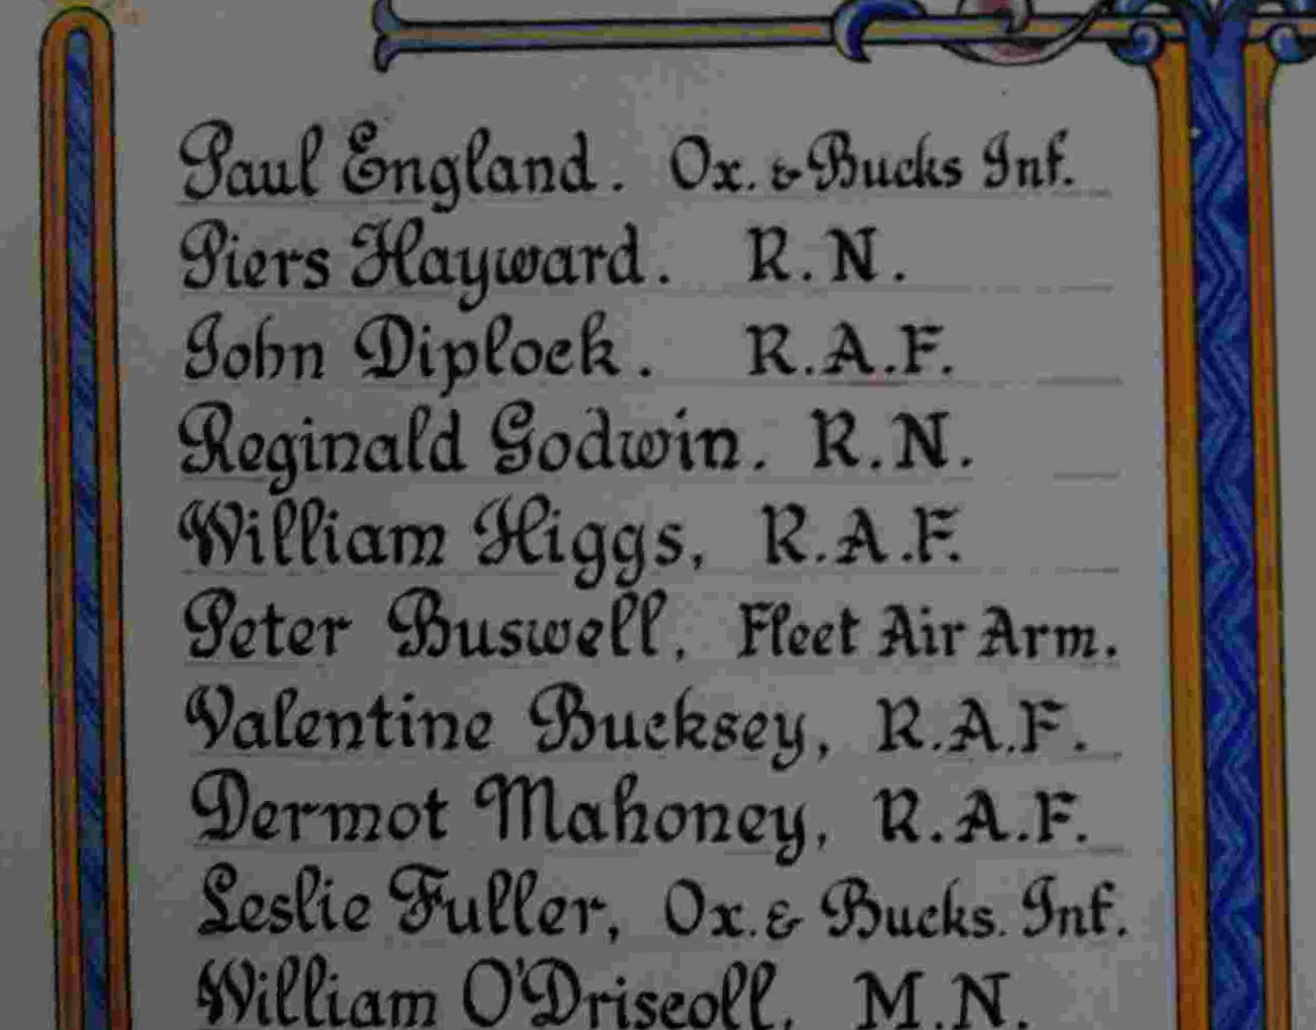 Paul England. Ox. & Bucks Inf.
Piers Hayward. R.N.
John Diplock. R.A.F.
Reginald Godwin. R.N.
William Higgs, R.A.F.
Peter Buswell, Fleet Air Arm.
Valentine Bucksey, R.A.F.
Dermot Mahoney, R.A.F.
Leslie Fuller, Ox. & Bucks. Inf.
William O'Driscoll, M.N.